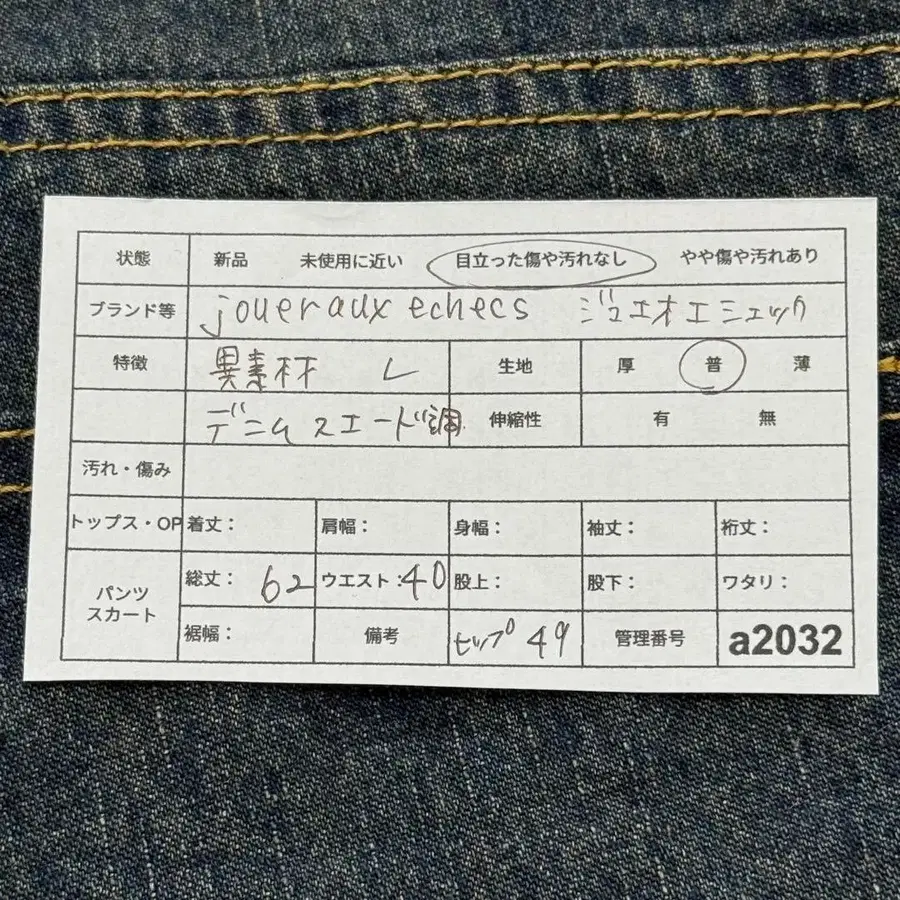 状態 新品 未使用に近い 目立った傷や汚れなし やや傷や汚れあり
ブランド等 joueraux echecs ジュエオエシェック
特徴 異素材 L 生地 厚 普 薄
デニム スエード調 伸縮性 有 無
汚れ・傷み
トップス・OP 着丈: 肩幅: 身幅: 袖丈: 裄丈:
パンツ スカート 総丈: 62 ウエスト: 40 股上: 股下: ワタリ:
裾幅: 備考 ヒップ 49 管理番号 a2032